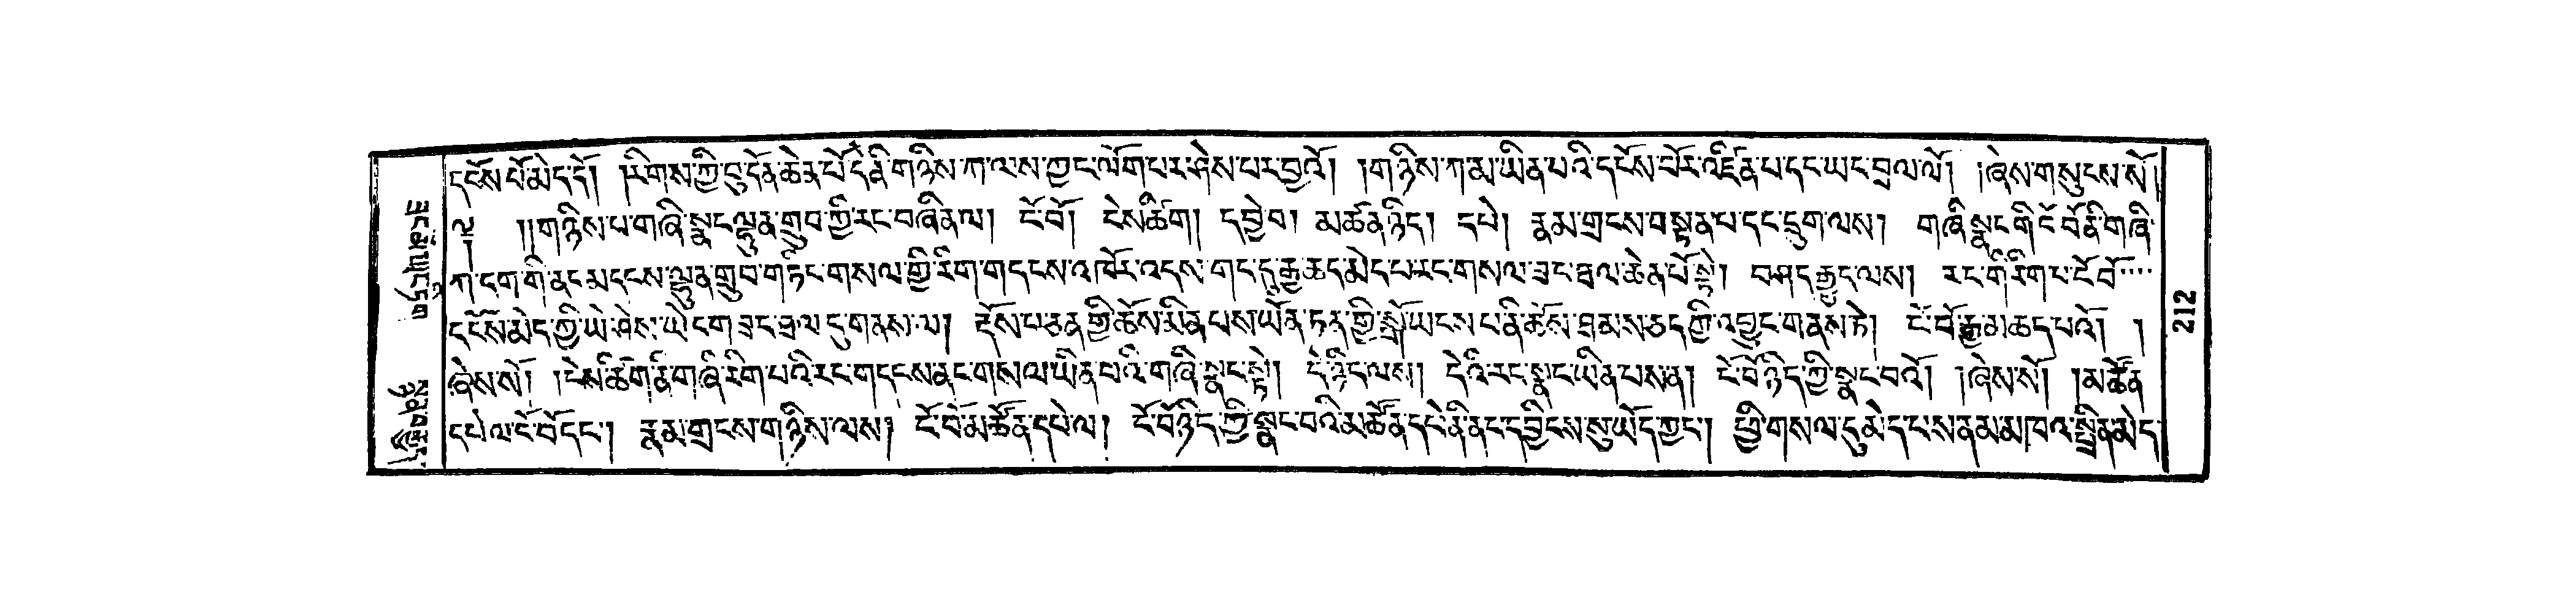 དངོས་པོ་མེད་དོ། །རིགས་ཀྱི་བུ་དོན་ཆེན་པོ་དེ་ནི་གཉིས་ཀ་ལས་ཀྱང་ལོག་པར་ཤེས་པར་བྱའོ། །གཉིས་ཀ་མ་ཡིན་པའི་དངོས་པོར་འཛིན་པ་དང་ཡང་བྲལ་ལོ། །ཞེས་གསུངས་སོ།
ལ། །།གཉིས་པ་གཞི་སྣང་ལྷུན་གྲུབ་ཀྱི་རང་བཞིན་ལ། ངོ་བོ། ངེས་ཚིག། དབྱེ་བ། མཚན་ཉིད། དཔེ། རྣམ་གྲངས་བསྟན་པ་དང་དྲུག་ལས། གཞི་སྣང་གི་ངོ་བོ་ནི་གཞི་
ཀ་དག་གི་ནང་མདངས་ལྷུན་གྲུབ་གཏིང་གསལ་གྱི་རིག་གདངས་འཁོར་འདས་གང་དུ་རྒྱ་ཆད་མེད་པ་རང་གསལ་ཟང་ཐལ་ཆེན་པོ་སྟེ། བཤད་རྒྱུད་ལས། རང་གི་རིག་པ་ངོ་བོ
དངོས་མེད་ཀྱི་ཡེ་ཤེས་ཡེ་དག་ཟང་ཐལ་དུ་གནས་ལ། དངོས་བཅན་གྱི་ཆོས་མིན་པས་ཡོན་ཏན་གྱི་སྒྲོ་ཡངས་པ་ནི་ཆོས་ཐམས་ཅད་ཀྱི་འབྱུང་གནས་ཏེ། ངོ་བོ་རྒྱ་མ་ཆད་པའོ། །
ཞེས་སོ། །ངེས་ཚིག་ནི་གཞི་རིག་པའི་རང་གདངས་ནང་གསལ་ཡིན་པའི་གཞི་སྣང་སྟེ། དེ་ཉིད་ལས། དེའི་རང་སྣང་ཡིན་པས་ན། ངོ་བོ་ཉིད་ཀྱི་སྣང་བའོ། །ཞེས་སོ། །མཚོན་
དཔེ་ལ་ངོ་བོ་དང་། རྣམ་གྲངས་གཉིས་ལས། ངོ་བོ་མཚོན་དཔེ་ལ། ངོ་བོ་ཉིད་ཀྱི་སྣང་བའི་མཚོན་དཔེ་ནི་ནང་དབྱིངས་སུ་ཡོད་ཀྱང་། ཕྱི་གསལ་དུ་མེད་པས་ནམ་མཁའ་སྤྲིན་མེད་
212